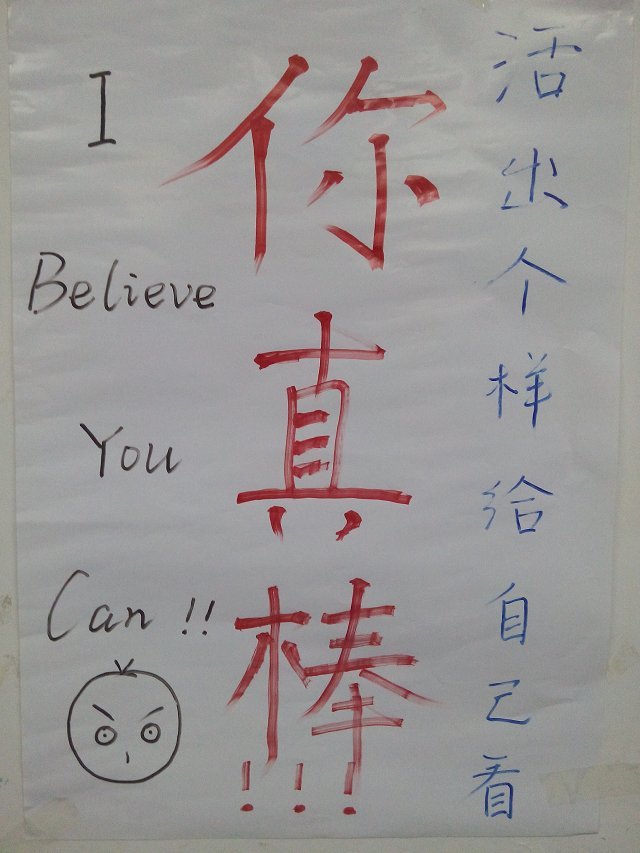 活出个样给自己看
你真棒!!!
I
Believe
You
Can !!